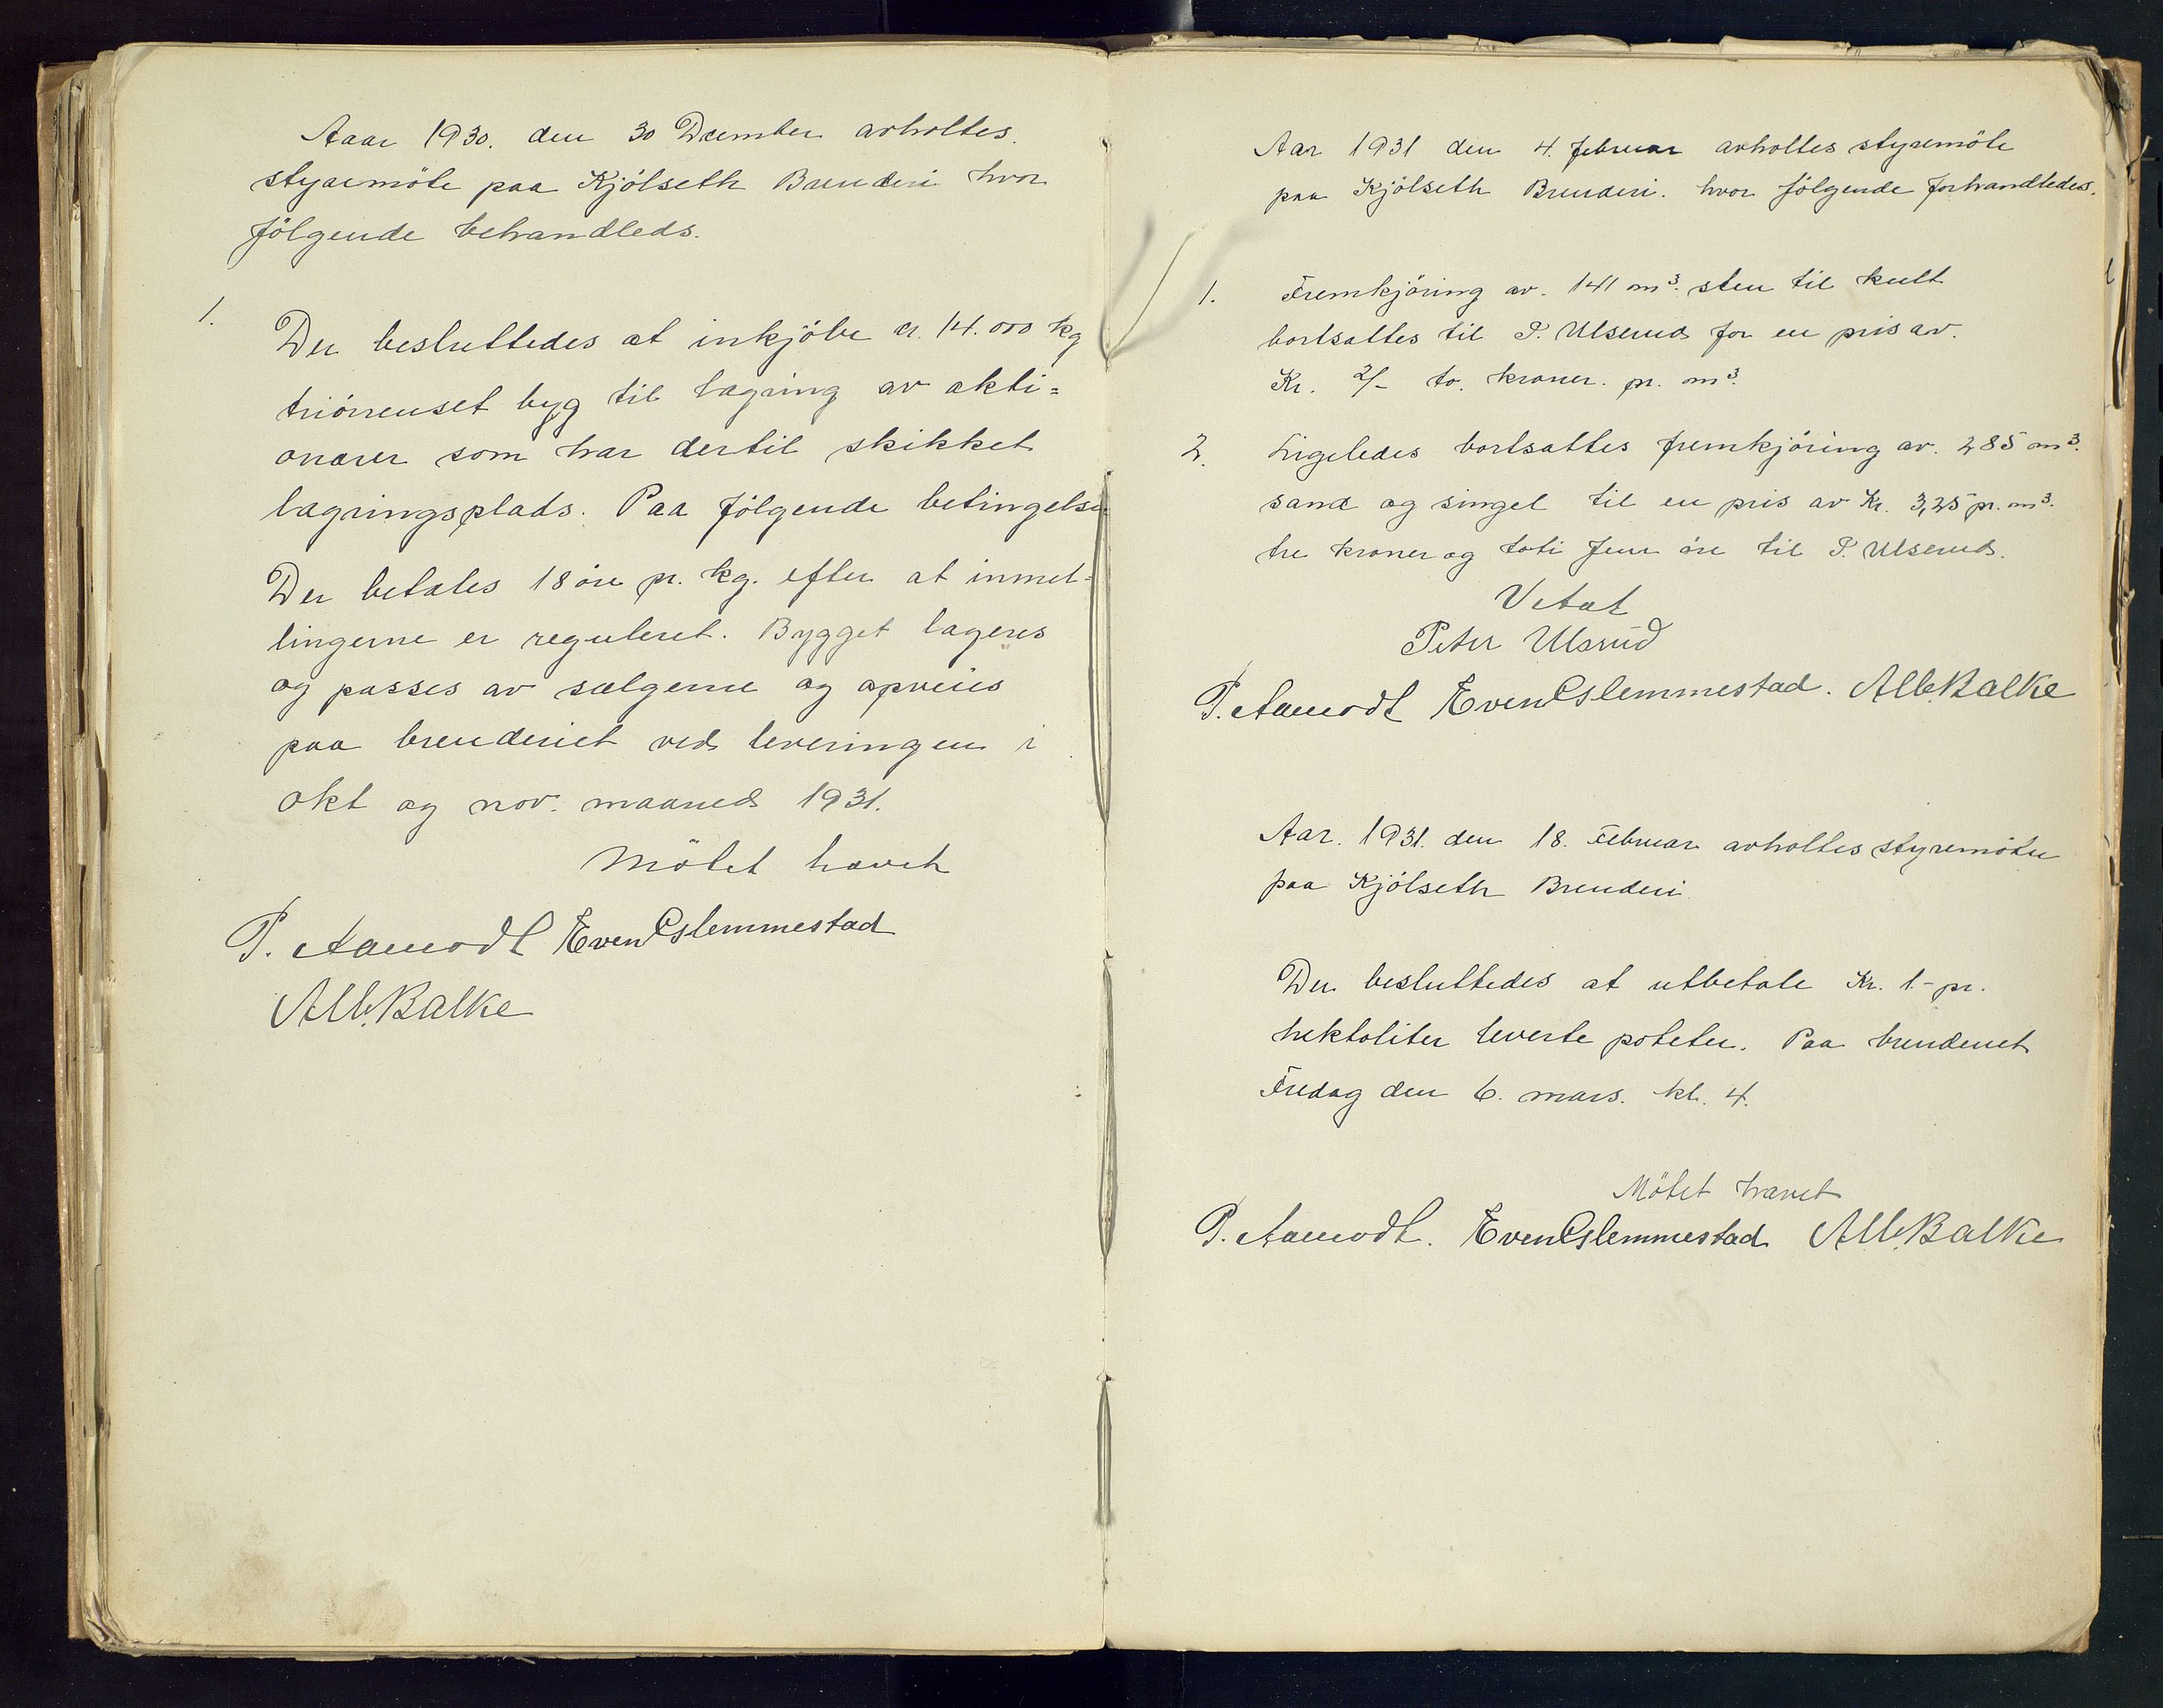 Aaar 1930. den 30 December avholtes.
styremöte paa Kjölseth Brenderi hvor
følgende behandleds.
1.
Der besluttedes at inkjöbe ca. 14.000 kg
triörrenset byg til lagring av akti=
onærer som har dertil skikket
lagringsplads. Paa følgende betingelse
Der betales 18 öre pr. kg. efter at inmel=
lingerne er reguleret. Bygget lageres
og passes av sælgerne og opveies
paa brenderiet ved leveringen i
Okt og nov. maaned 1931.
Mötet hævet
P. Aamodt Even Eslemmestad
Alb. Balke
Aar 1931 den 4. februar avholtes styremöte
paa Kjölseth Brenderi. hvor følgende forhandledes.
1. Fremkjöring av. 141 m³. sten til kult
bortsattes til P. Ulserud for en pris av.
Kr. 2/- to. kroner. pr. m³.
2. Ligeledes bortsattes fremkjöring av. 285 m³.
sand og singel til en pris av Kr. 3,25 pr. m³.
tre kroner og toti fem öre til P. Ulserud.
Vetat
Peter Ulsrud
P. Aamodt Even Eslemmestad. Alb. Balke
Aar. 1931. den 18. Februar avholtes styremöte
paa Kjölseth Brenderi
Der besluttedes at utbetale Kr. 1- pr.
hektoliter leverte poteter. Paa brenderiet
Fredag den 6. mars. kl. 4.
Mötet hævet
P. Aamodt. Even Eslemmestad Alb. Balke